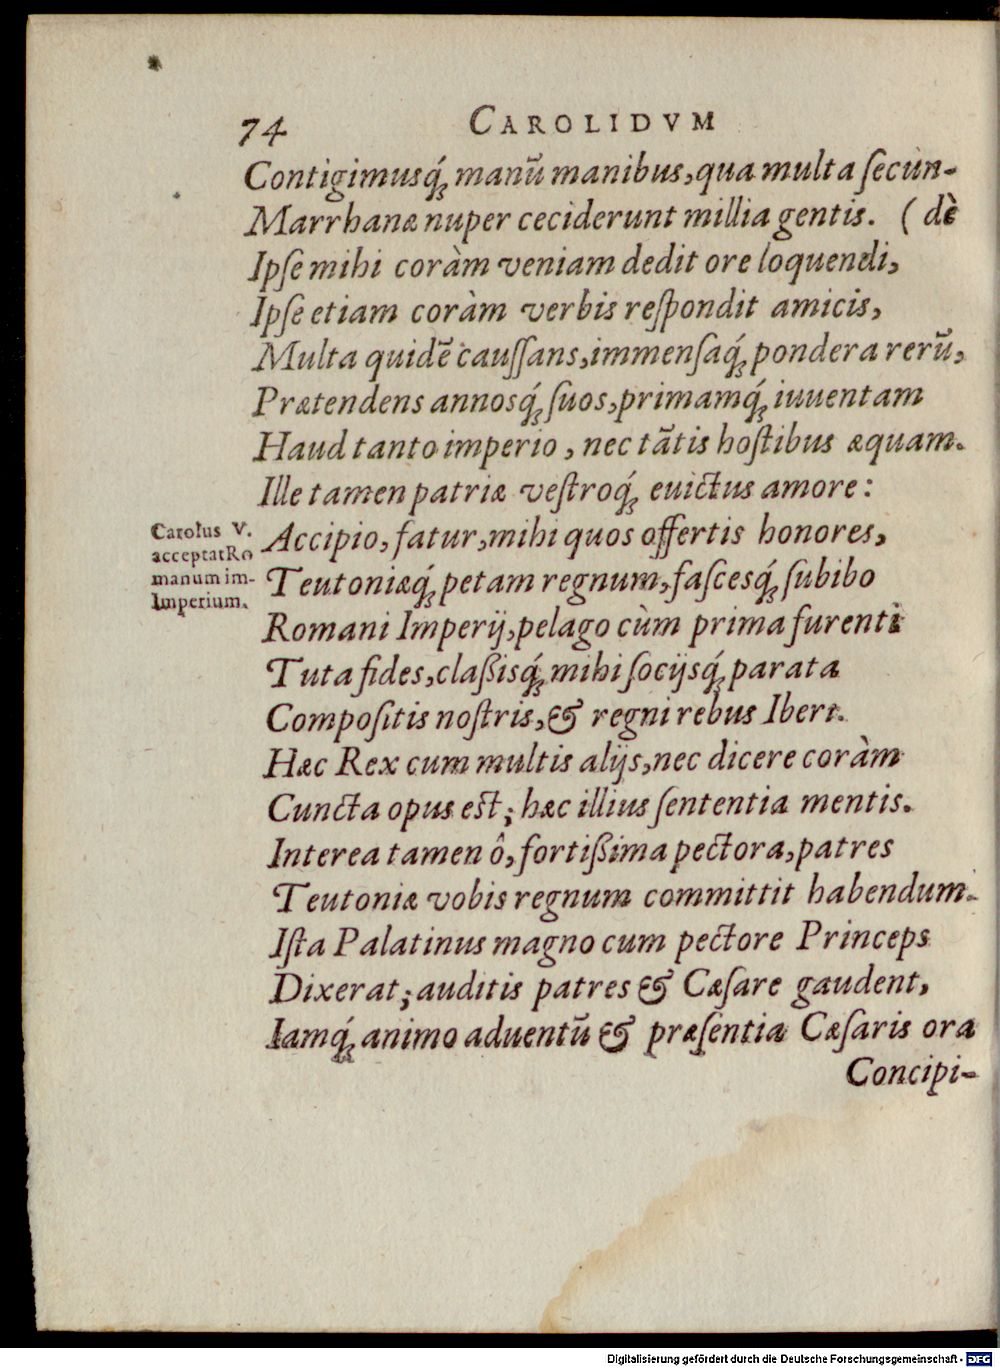 74 CAROLIDVM
Contigimusq́ꝫ manū manibus, qua multa ſecun-
Marrhanæ nuper ceciderunt millia gentis. ( dè
Ipſe mihi coràm veniam dedit ore loquendi,
Ipſe etiam coràm verbis reſpondit amicis,
Multa quidẽ cauſſans, immenſaq́ꝫ pondera rerũ,
Prætendens annosq́ꝫ ſuos, primamq́ꝫ iuuentam
Haud tanto imperio, nec tãtis hoſtibus æquam.
Ille tamen patriæ veſtroq́ꝫ euictus amore:
Carolus V.
acceptat Ro
manum im-
Imperium.
Accipio, fatur, mihi quos offertis honores,
Teutoniæq́ꝫ petam regnum, faſcesq́ꝫ ſubibo
Romani Imperij, pelago cùm prima furenti
Tuta fides, claßisq́ꝫ mihi ſocijsq́ꝫ parata
Compoſitis noſtris, & regni rebus Iberi.
Hæc Rex cum multis alijs, nec dicere coràm
Cuncta opus eſt; hæc illius ſententia mentis.
Interea tamen ô, fortißima pectora, patres
Teutoniæ vobis regnum committit habendum.
Iſta Palatinus magno cum pectore Princeps
Dixerat; auditis patres & Cæſare gaudent,
Iamq́ꝫ animo aduentũ & præſentia Cæſaris ora
Concipi-
Digitalisierung gefördert durch die Deutsche Forschungsgemeinschaft - DFG